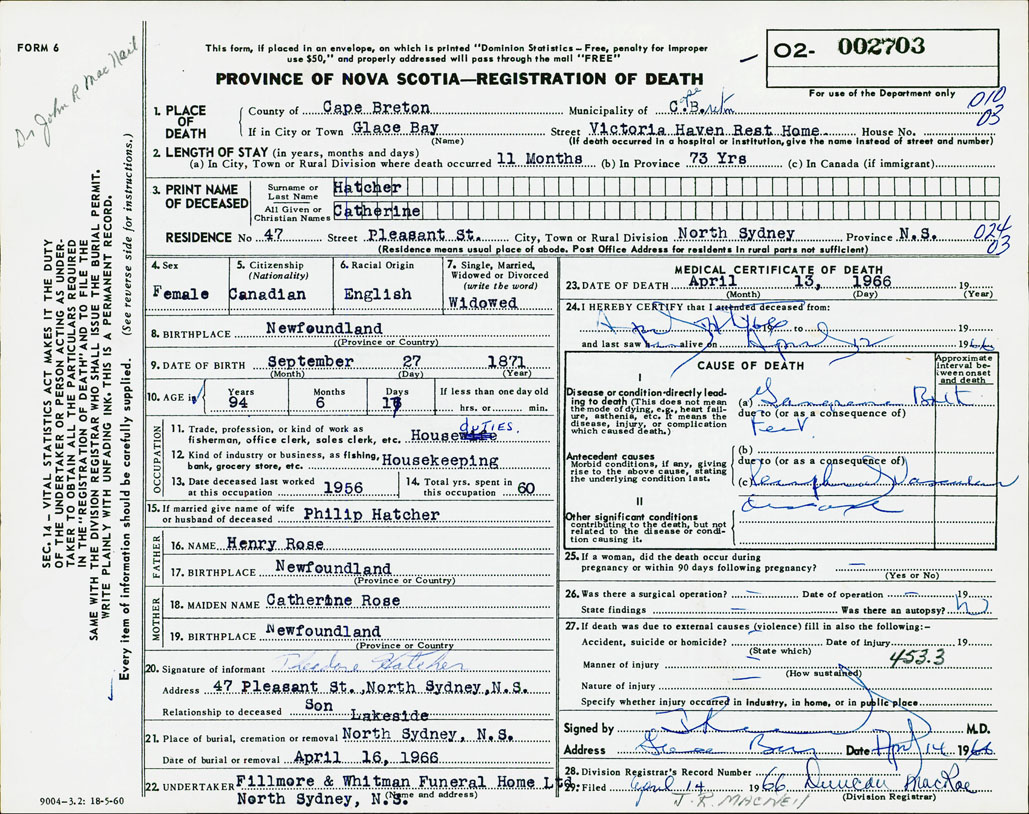 FORM 6
Dr John R MacNeil
This form, if placed in an envelope, on which is printed "Dominion Statistics – Free, penalty for improper
use $50," and properly addressed will pass through the mail "FREE"
PROVINCE OF NOVA SCOTIA—REGISTRATION OF DEATH
02- 002703
For use of the Department only
010
03
1. PLACE OF DEATH
County of Cape Breton Municipality of C.B.
If in City or Town Glace Bay Street Victoria Haven Rest Home House No.
(Name) (If death occurred in a hospital or institution, give the name instead of street and number)
2. LENGTH OF STAY (in years, months and days)
(a) In City, Town or Rural Division where death occurred 11 Months (b) In Province 73 Yrs (c) In Canada (if immigrant)
3. PRINT NAME OF DECEASED
Surname or Last Name Hatcher
All Given or Christian Names Catherine
RESIDENCE No 47 Street Pleasant St. City, Town or Rural Division North Sydney Province N.S.
024
03
(Residence means usual place of abode. Post Office Address for residents in rural parts not sufficient)
4. Sex
Female
5. Citizenship
(Nationality)
Canadian
6. Racial Origin
English
7. Single, Married, Widowed or Divorced
(write the word)
Widowed
8. BIRTHPLACE Newfoundland
(Province or Country)
9. DATE OF BIRTH September 27 1871
(Month) (Day) (Year)
10. AGE is
Years Months Days If less than one day old
94 6 hrs. or min.
OCCUPATION
11. Trade, profession, or kind of work as
fisherman, office clerk, sales clerk, etc. House DUTIES.
12. Kind of industry or business, as fishing,
bank, grocery store, etc. Housekeeping
13. Date deceased last worked at this occupation 1956
14. Total yrs. spent in this occupation 60
15. If married give name of wife or husband of deceased Philip Hatcher
FATHER
16. NAME Henry Rose
17. BIRTHPLACE Newfoundland
(Province or Country)
MOTHER
18. MAIDEN NAME Catherine Rose
19. BIRTHPLACE Newfoundland
(Province or Country
20. Signature of informant Theodore Hatcher
Address 47 Pleasant St.,North Sydney,N.S.
Relationship to deceased Son
Lakeside
21. Place of burial, cremation or removal North Sydney, N.S.
Date of burial or removal April 16, 1966
22. UNDERTAKER Fillmore & Whitman Funeral Home Ltd.
North Sydney, N.S.
(Name and address)
9004–3.2: 18-5-60
SEC. 14 – VITAL STATISTICS ACT MAKES IT THE DUTY
OF THE UNDERTAKER OR PERSON ACTING AS UNDER-
TAKER TO OBTAIN ALL THE PARTICULARS REQUIRED
IN THE "REGISTRATION OF DEATH" AND TO FILE THE
SAME WITH THE DIVISION REGISTRAR WHO SHALL ISSUE THE BURIAL PERMIT.
WRITE PLAINLY WITH UNFADING INK. THIS IS A PERMANENT RECORD.
Every item of information should be carefully supplied. (See reverse side for instructions.)
MEDICAL CERTIFICATE OF DEATH
23. DATE OF DEATH April 13, 1966 19
(Month) (Day) (Year)
24. I HEREBY CERTIFY that I attended deceased from:
to 19
and last saw alive on April 12 1966
CAUSE OF DEATH
Approximate interval between onset and death
I
Disease or condition directly lead-
ing to death (This does not mean
the mode of dying, e.g., heart fail-
ure, asthenia, etc. It means the
disease, injury, or complication
which caused death.)
(a) Gangrene Both
due to (or as a consequence of)
Feet
Antecedent causes
Morbid conditions, if any, giving
rise to the above cause, stating
the underlying condition last.
(b)
due to (or as a consequence of)
(c) Peripheral Vascular
disease
II
Other significant conditions
contributing to the death, but not
related to the disease or condi-
tion causing it.
25. If a woman, did the death occur during
pregnancy or within 90 days following pregnancy? —
(Yes or No)
26. Was there a surgical operation? — Date of operation —
State findings — Was there an autopsy?
27. If death was due to external causes (violence) fill in also the following:–
Accident, suicide or homicide? Date of injury 19
(State which)
453.3
Manner of injury —
(How sustained)
Nature of injury —
Specify whether injury occurred in industry, in home, or in public place
Signed by M.D.
Address Glace Bay Date April 14 1966
28. Division Registrar's Record Number
29. Filed April 14 1966 Duncan MacRae
(Division Registrar)
J. R. MACNEIL